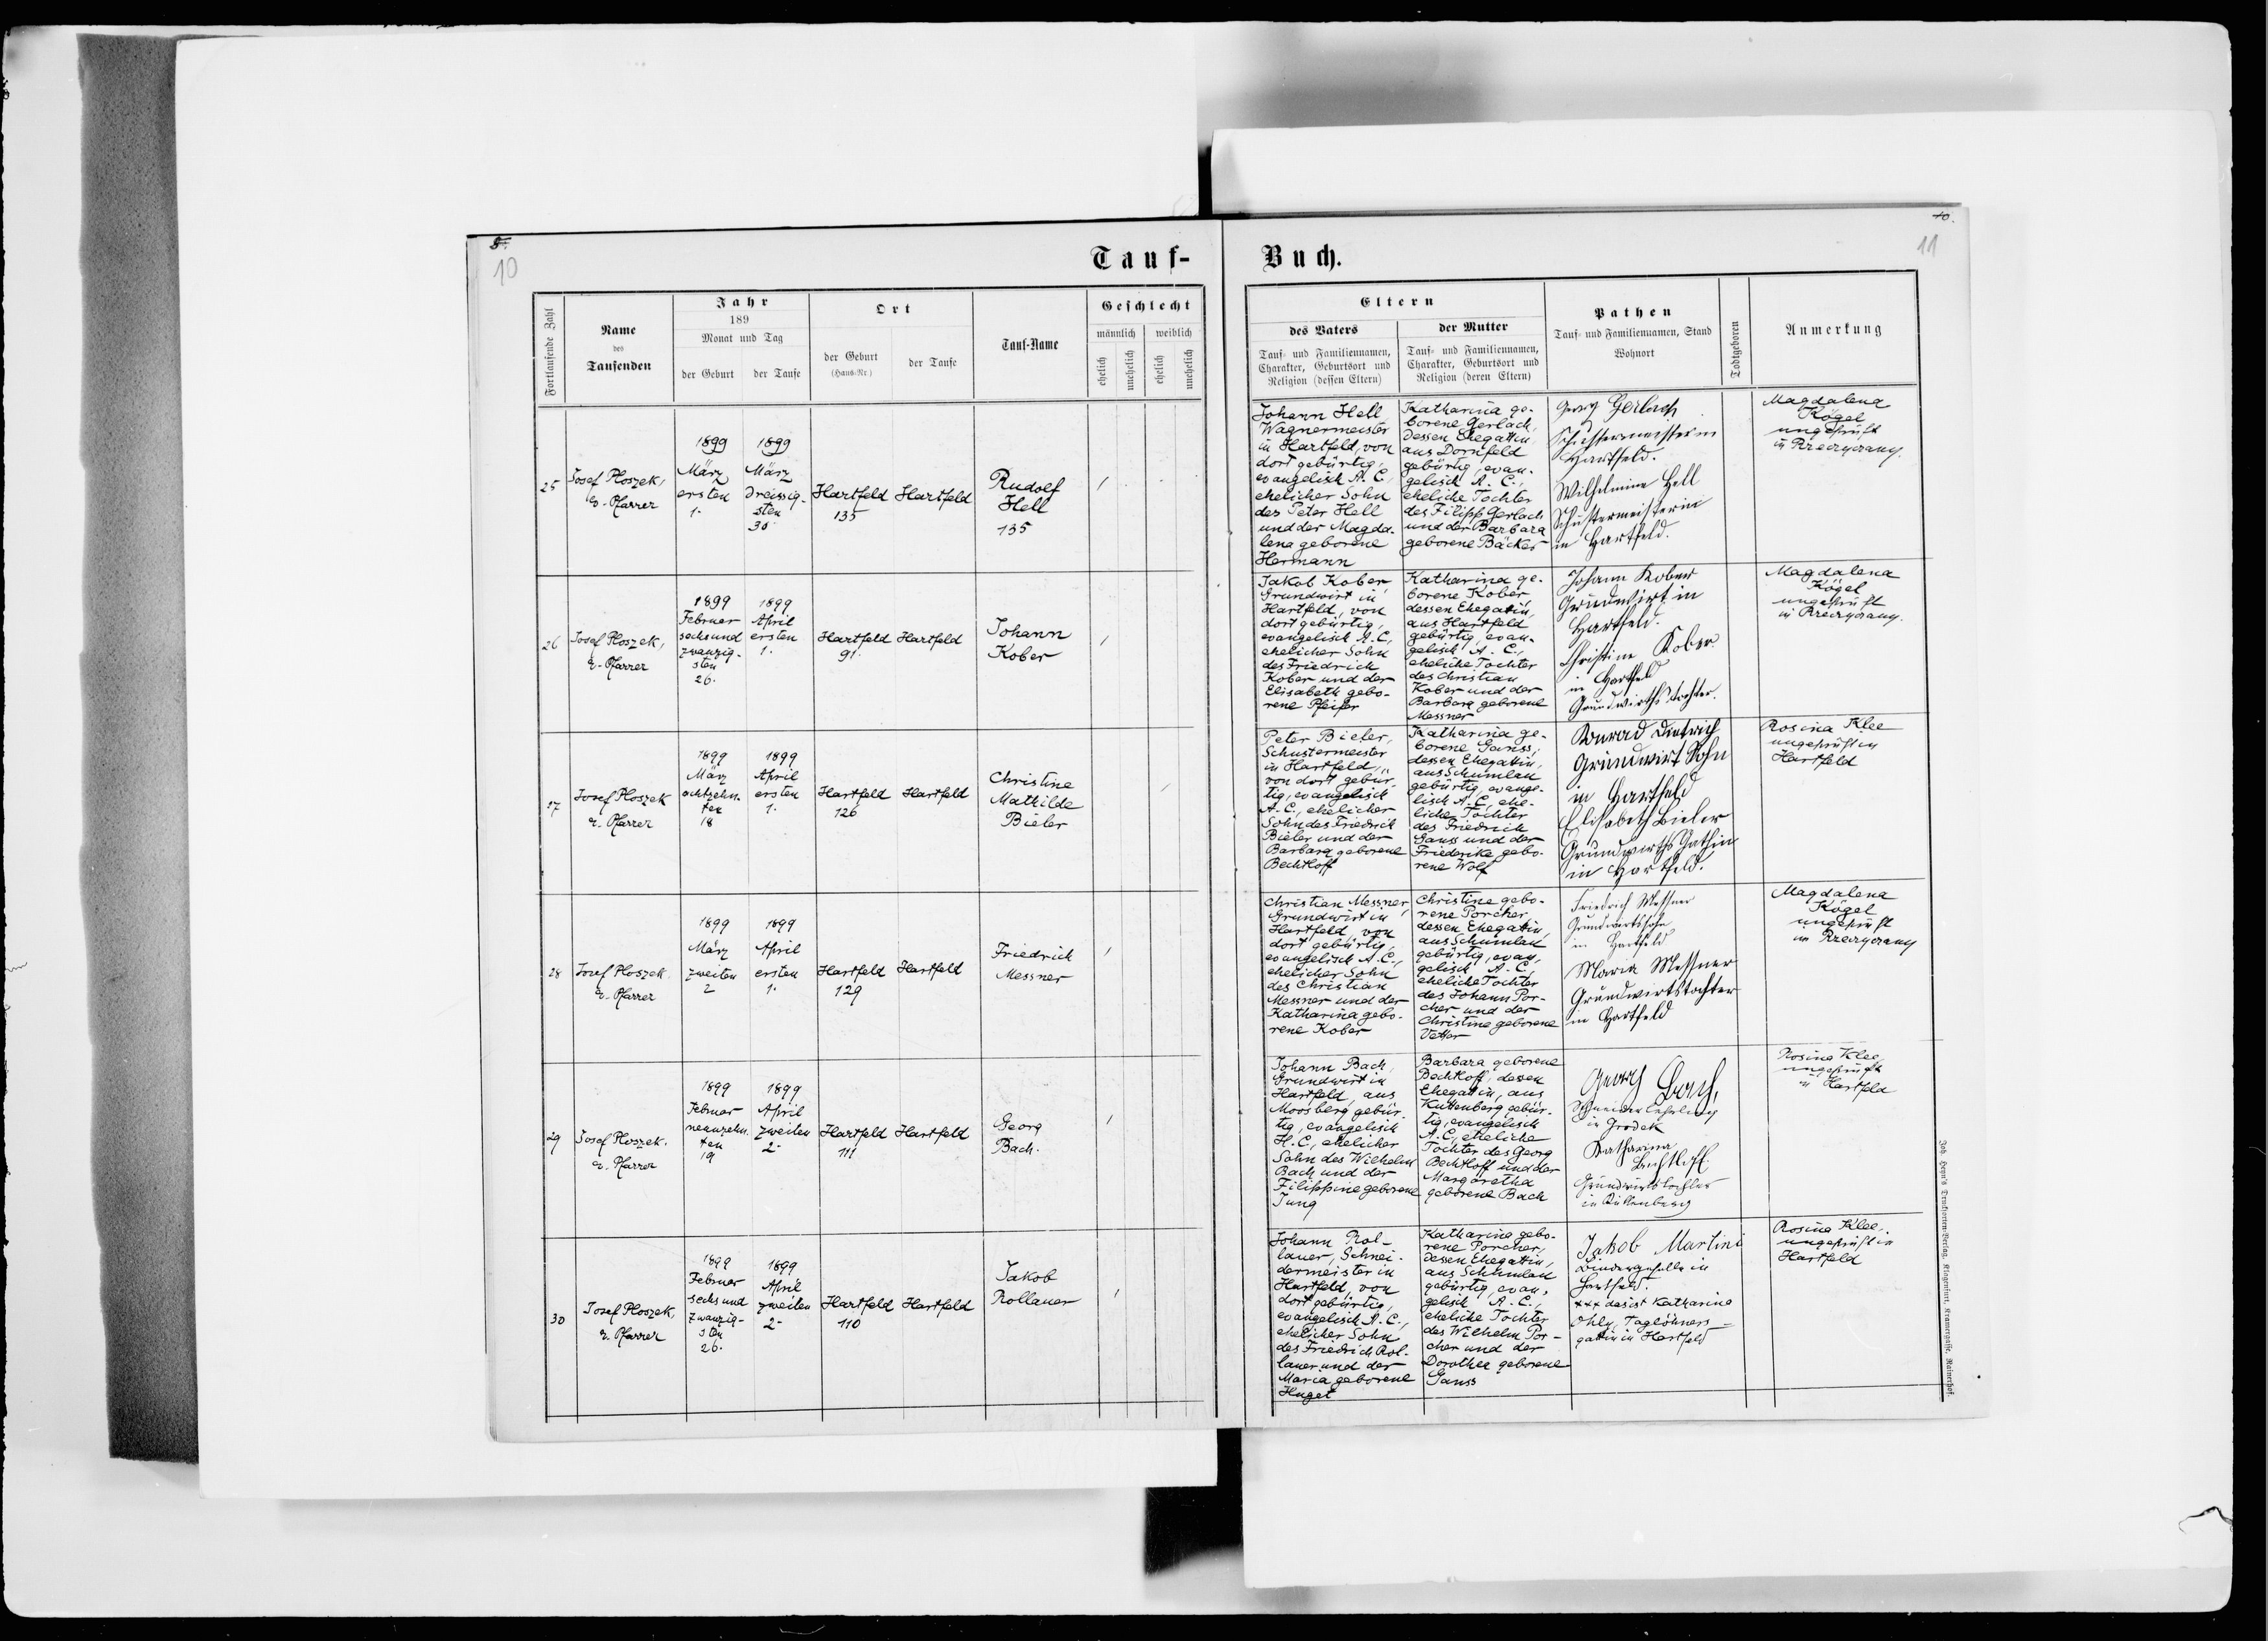 5.
10
Tauf-
Buch.
10.
11
Fortlaufende Zahl
Name
des
Taufenden
Jahr
189
Monat und Tag
der Geburt
der Taufe
Ort
der Geburt
(Haus-Nr.)
der Taufe
Tauf-Name
Geschlecht
männlich
weiblich
ehelich
unehelich
ehelich
unehelich
Eltern
des Vaters
Tauf- und Familiennamen,
Charakter, Geburtsort und
Religion (dessen Eltern)
der Mutter
Tauf- und Familiennamen,
Charakter, Geburtsort und
Religion (deren Eltern)
Pathen
Tauf- und Familiennamen, Stand
Wohnort
Todtgeboren
Anmerkung
25
Josef Ploszek,
ev. Pfarrer
1899
März
ersten
1.
1899
März
dreissig-
sten
30.
Hartfeld
135
Hartfeld
Rudolf
Hell
135
Johann Hell
Wagnermeister
in Hartfeld, von
dort gebürtig,
evangelisch A. C.,
ehelicher Sohn
des Peter Hell
und der Magda-
lena geborene
Hermann
Katharina ge-
borene Gerlach,
dessen Ehegattin
aus Dornfeld
gebürtig, evan-
gelisch A. C.,
eheliche Tochter
des Filipp Gerlach
und der Barbara
geborene Bäcker
Georg Gerlach
Schustermeister in
Hartfeld.
Wilhelmine Hell
Schustermeisterin
in Hartfeld.
Magdalena
Kögel
ungeprüft
in Rzeczyczany.
26
Josef Ploszek,
ev. Pfarrer
1899
Februar
sechsund
zwanzig-
sten
26.
1899
April
ersten
1.
Hartfeld
91.
Hartfeld
Johann
Kober
Jakob Kober
Grundwirt in
Hartfeld, von
dort gebürtig,
evangelisch A. C.,
ehelicher Sohn
des Friedrich
Kober und der
Elisabeth gebo-
rene Pfeifer
Katharina ge-
borene Kober
dessen Ehegattin,
aus Hartfeld
gebürtig, evan-
gelisch A. C.,
eheliche Tochter
des Christian
Kober und der
Barbara geborene
Messner
Johann Kober
Grundwirt in
Hartfeld.
Christine Kober
in Hartfeld
Grundwirths tochter.
Magdalena
Kögel
ungeprüft
in Rzeczyczany.
17
Josef Ploszek
ev. Pfarrer
1899
März
achtzehn-
ten
18
1899
April
ersten
1.
Hartfeld
126
Hartfeld
Christine
Mathilde
Bieler
Peter Bieler,
Schustermeister
in Hartfeld,
von dort gebür-
tig, evangelisch
A. C., ehelicher
Sohn des Friedrich
Bieler und der
Barbara geborene
Bechtloff
Katharina ge-
borene Ganss,
dessen Ehegattin,
aus Schumlau
gebürtig, evange-
lisch A. C., ehe-
liche Tochter
des Friedrich
Ganss und der
Friederike gebo-
rene Wolf
Konrad Dietrich
Grundwirt Sohn
in Hartfeld
Elisabeth Bieler
Grundwirths Gathin
in Hartfeld.
Rosina Klee
ungeprüft in
Hartfeld
28
Josef Ploszek.
ev. Pfarrer
1899
März
zweiten
2
1899
April
ersten
1.
Hartfeld
129
Hartfeld
Friedrich
Messner
Christian Messner,
Grundwirt in
Hartfeld, von
dort gebürtig,
evangelisch A. C.,
ehelicher Sohn
des Christian
Messner und der
Katharina gebo-
rene Kober
Christine gebo-
rene Porcher,
dessen Ehegattin,
aus Schumlau
gebürtig, evan-
gelisch A. C.,
eheliche Tochter
des Johann Por-
cher und der
Christine geborene
Vetter
Friedrich Messner
Grundwirtssohn
in Hartfeld
Maria Messner
Grundwirtstochter
in Hartfeld
Magdalena
Kögel
ungeprüft
in Rzeczyczany
29
Josef Ploszek.
ev. Pfarrer
1899
Februar
neunzehn-
ten
19
1899
April
zweiten
2-
Hartfeld
111
Hartfeld
Georg
Bach.
Johann Bach,
Grundwirt in
Hartfeld, aus
Moosberg gebür-
tig, evangelisch
H. C., ehelicher
Sohn des Wilhelm
Bach und der
Filippine geborene
Jung
Barbara geborene
Bechtloff, dessen
Ehegattin, aus
Kuttenberg gebür-
tig, evangelisch
A. C., eheliche
Tochter des Georg
Bechtloff und der
Margaretha
geborene Bach
Georg Bach,
Schneider Lehrling
in Grodek
Katharina
Bechtloff
Grundwirts tochter
in Kuttenberg
Rosina Klee,
ungeprüft
in Hartfeld
30
Josef Ploszek,
ev. Pfarrer
1899
Februar
sechs und
zwanzig-
sten
26.
1899
April
zweiten
2-
Hartfeld
110
Hartfeld
Jakob
Rollauer
Johann Rol-
lauer, Schnei-
dermeister in
Hartfeld, von
dort gebürtig,
evangelisch A. C.,
ehelicher Sohn
des Friedrich Rol-
lauer und der
Maria geborene
Huget
Katharina gebo-
rene Porcher,
dessen Ehegattin,
aus Schumlau
gebürtig, evan-
gelisch A. C.,
eheliche Tochter
des Wilhelm Por-
cher und der
Dorothea geborene
Ganss
Jakob Martini
Bindergeselle in
Hartfeld.
+++ das ist Katharina
Ohly, Taglöhners-
gattin in Hartfeld
Rosina Klee,
ungeprüft in
Hartfeld
Joh. Heyn's Drucksorten-Verlag, Klagenfurt, Kramergasse, Rainerhof.